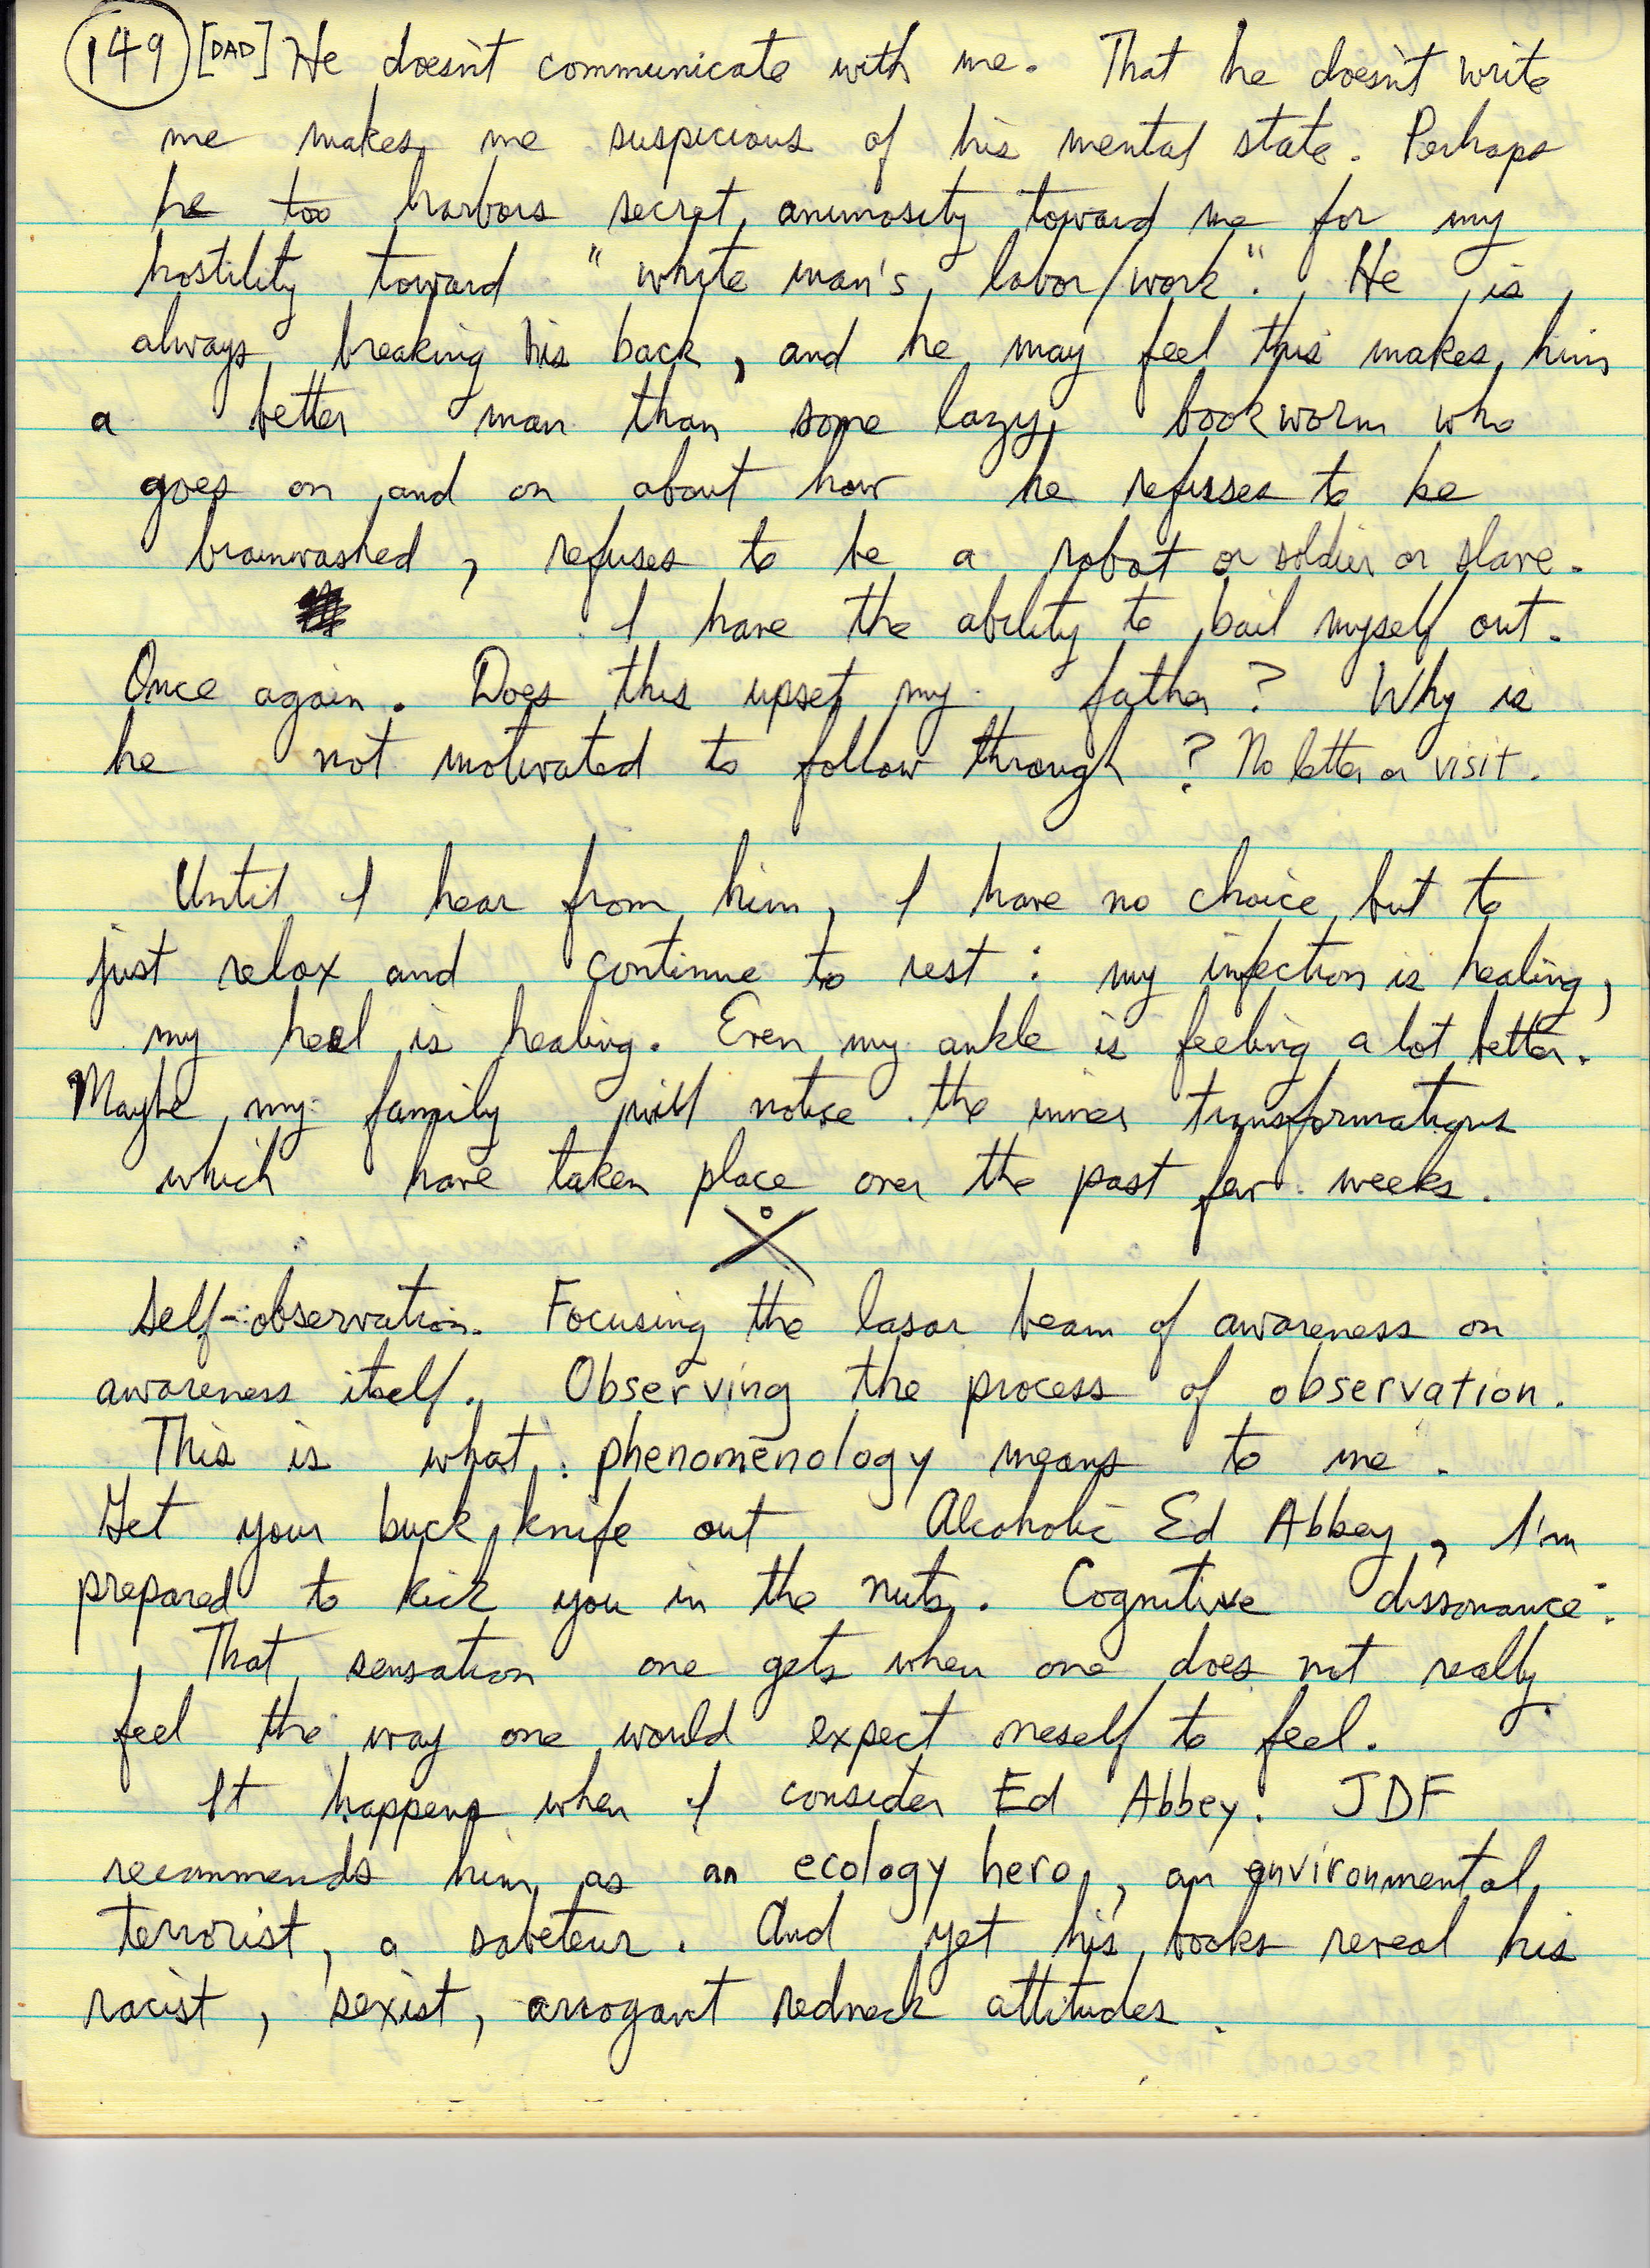 149 [DAD] He doesn't communicate with me. That he doesn't write
me makes me suspicious of his mental state. Perhaps
he too harbors secret animosity toward me for my
hostility toward "white man's labor/work". He is
always breaking his back, and he may feel this makes him
a better man than some lazy bookworm who
goes on and on about how he refuses to be
brainwashed, refuses to be a robot or soldier or slave.
I have the ability to bail myself out.
Once again. Does this upset my father? Why is
he not motivated to follow through? No letter or visit.
Until I hear from him, I have no choice but to
just relax and continue to rest: my infection is healing,
my heel is healing. Even my ankle is feeling a lot better.
Maybe my family will notice the inner transformations
which have taken place over the past few weeks.
Self-observation. Focusing the lasar beam of awareness on
awareness itself. Observing the process of observation.
This is what phenomenology means to me.
Get your buck knife out Alcoholic Ed Abbey, I'm
prepared to kick you in the nuts. Cognitive dissonance:
That sensation one gets when one does not really
feel the way one would expect oneself to feel.
It happens when I consider Ed Abbey. JDF
recommends him as an ecology hero, an environmental
terrorist, a sabeteur. And yet his books reveal his
racist, sexist, arrogant redneck attitudes.